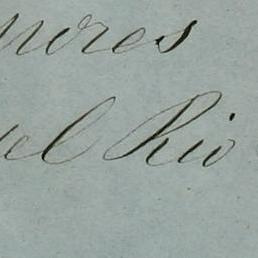 nores
el Rio